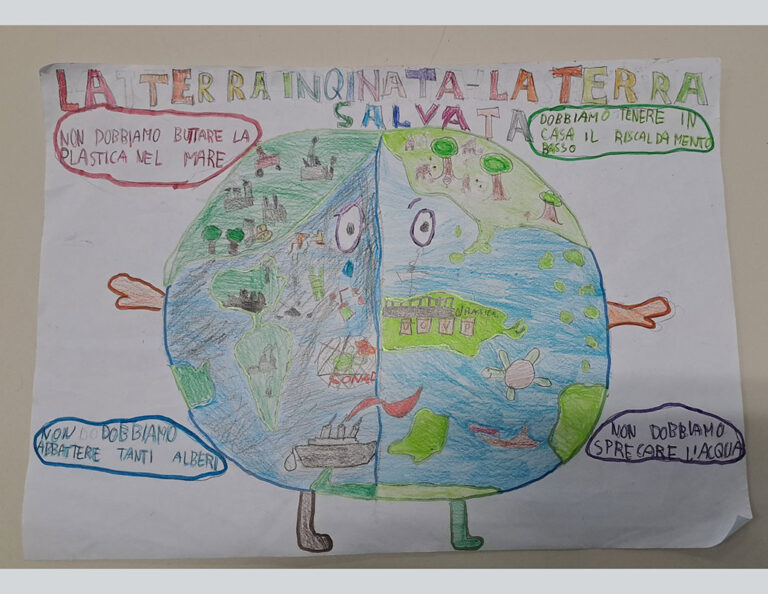 LA TERRA INQINATA-LA TERRA
SALVATA
NON DOBBIAMO BUTTARE LA
PLASTICA NEL MARE
DOBBIAMO TENERE IN
CASA IL RISCALDAMENTO
BASSO
CONAD
NON DOBBIAMO
ABBATTERE TANTI ALBERI
NON DOBBIAMO
SPRECARE L'ACQUA